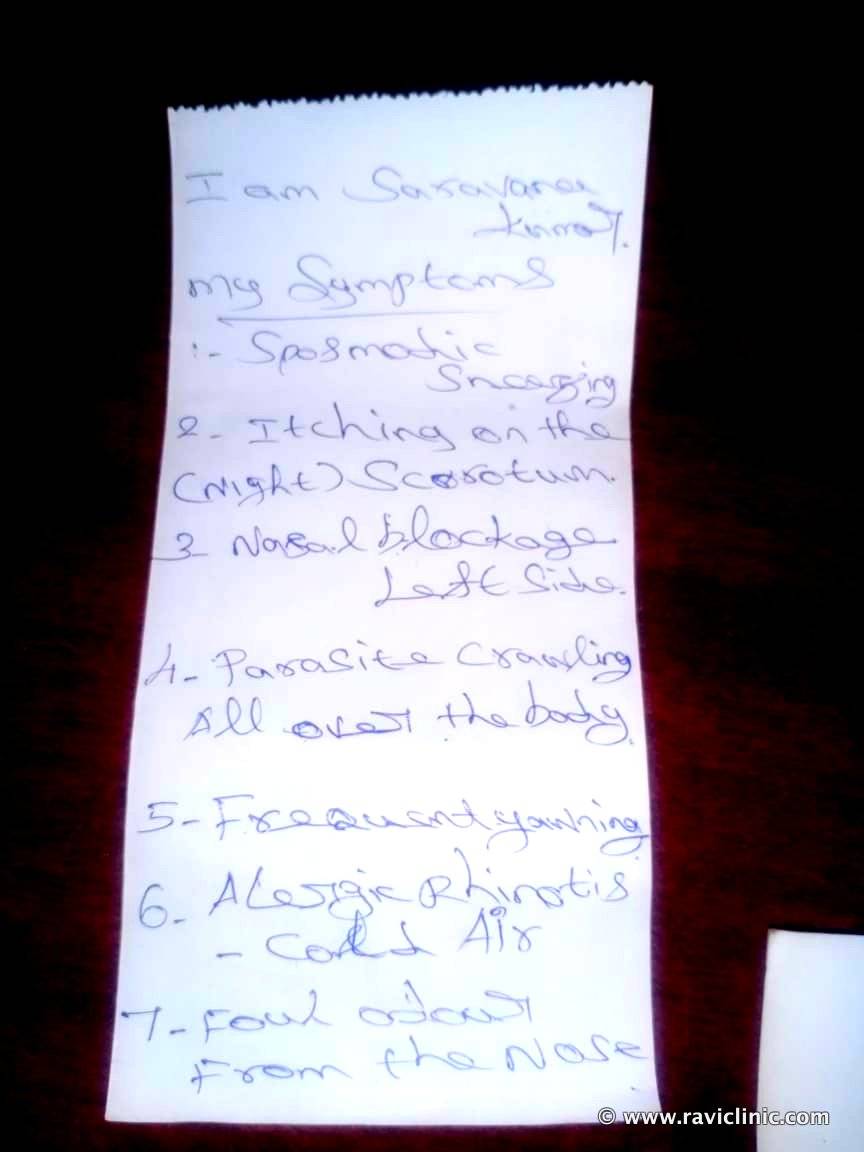 I am Saravana
kumar.
my Symptoms
1- Spasmodic
Sneezing
2- Itching on the
(Night) Scorotum.
3- Nasal blockage
Left Side.
4- Parasite Crawling
All over the body.
5- Frequent yawning
6- Alergic Rhinotis
- Cold Air
7- Foul odour
From the Nose.
© www.raviclinic.com